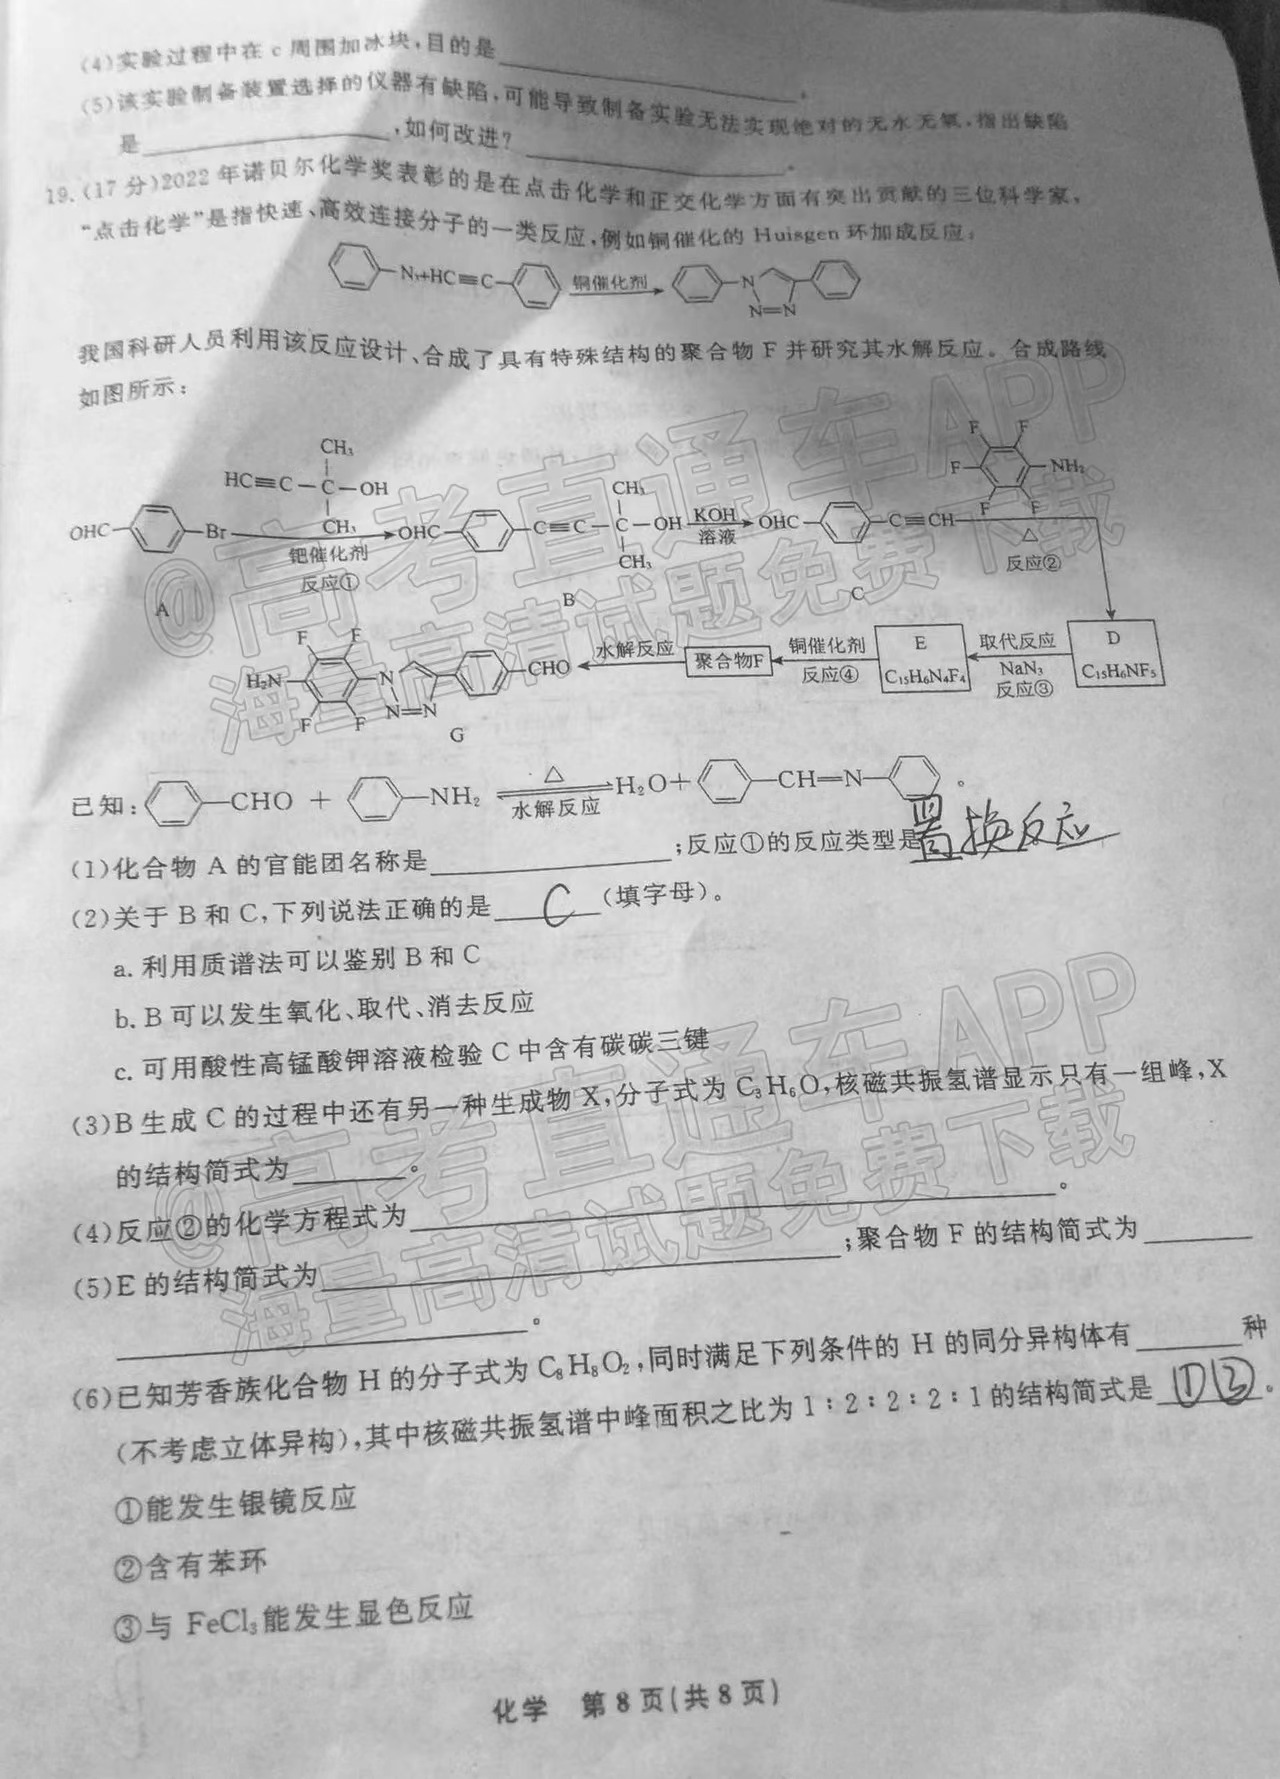 (4)实验过程中在 c 周围加冰块,目的是____。
(5)该实验制备装置选择的仪器有缺陷,可能导致制备实验无法实现绝对的无水无氧,指出缺陷
是____,如何改进?____。
19.(17 分)2022 年诺贝尔化学奖表彰的是在点击化学和正交化学方面有突出贡献的三位科学家,
“点击化学”是指快速、高效连接分子的一类反应,例如铜催化的 Huisgen 环加成反应:
N₃+HC≡C 铜催化剂 N N=N
我国科研人员利用该反应设计、合成了具有特殊结构的聚合物 F 并研究其水解反应。合成路线
如图所示:
CH₃
HC≡C—C—OH
CH₃
OHC Br 钯催化剂 反应① A
OHC C≡C—C—OH CH₃ CH₃ B
KOH 溶液
OHC C≡CH C
F F F F F NH₂ △ 反应②
D C₁₅H₆NF₅
取代反应 NaN₃ 反应③
E C₁₅H₆N₄F₄
铜催化剂 反应④
聚合物F
水解反应
F F H₂N F F N N=N CHO G
已知: CHO + NH₂ △ 水解反应 H₂O+ CH=N 。
(1)化合物 A 的官能团名称是____;反应①的反应类型是置换反应
(2)关于 B 和 C,下列说法正确的是 C (填字母)。
a. 利用质谱法可以鉴别 B 和 C
b. B 可以发生氧化、取代、消去反应
c. 可用酸性高锰酸钾溶液检验 C 中含有碳碳三键
(3)B 生成 C 的过程中还有另一种生成物 X,分子式为 C₃H₆O,核磁共振氢谱显示只有一组峰,X
的结构简式为____。
(4)反应②的化学方程式为____。
(5)E 的结构简式为____;聚合物 F 的结构简式为____
____。
(6)已知芳香族化合物 H 的分子式为 C₈H₈O₂,同时满足下列条件的 H 的同分异构体有____种
(不考虑立体异构),其中核磁共振氢谱中峰面积之比为 1∶2∶2∶2∶1 的结构简式是 ①③ 。
①能发生银镜反应
②含有苯环
③与 FeCl₃ 能发生显色反应
化学 第 8 页(共 8 页)
@高考直通车APP
海量高清试题免费下载
@高考直通车APP
海量高清试题免费下载